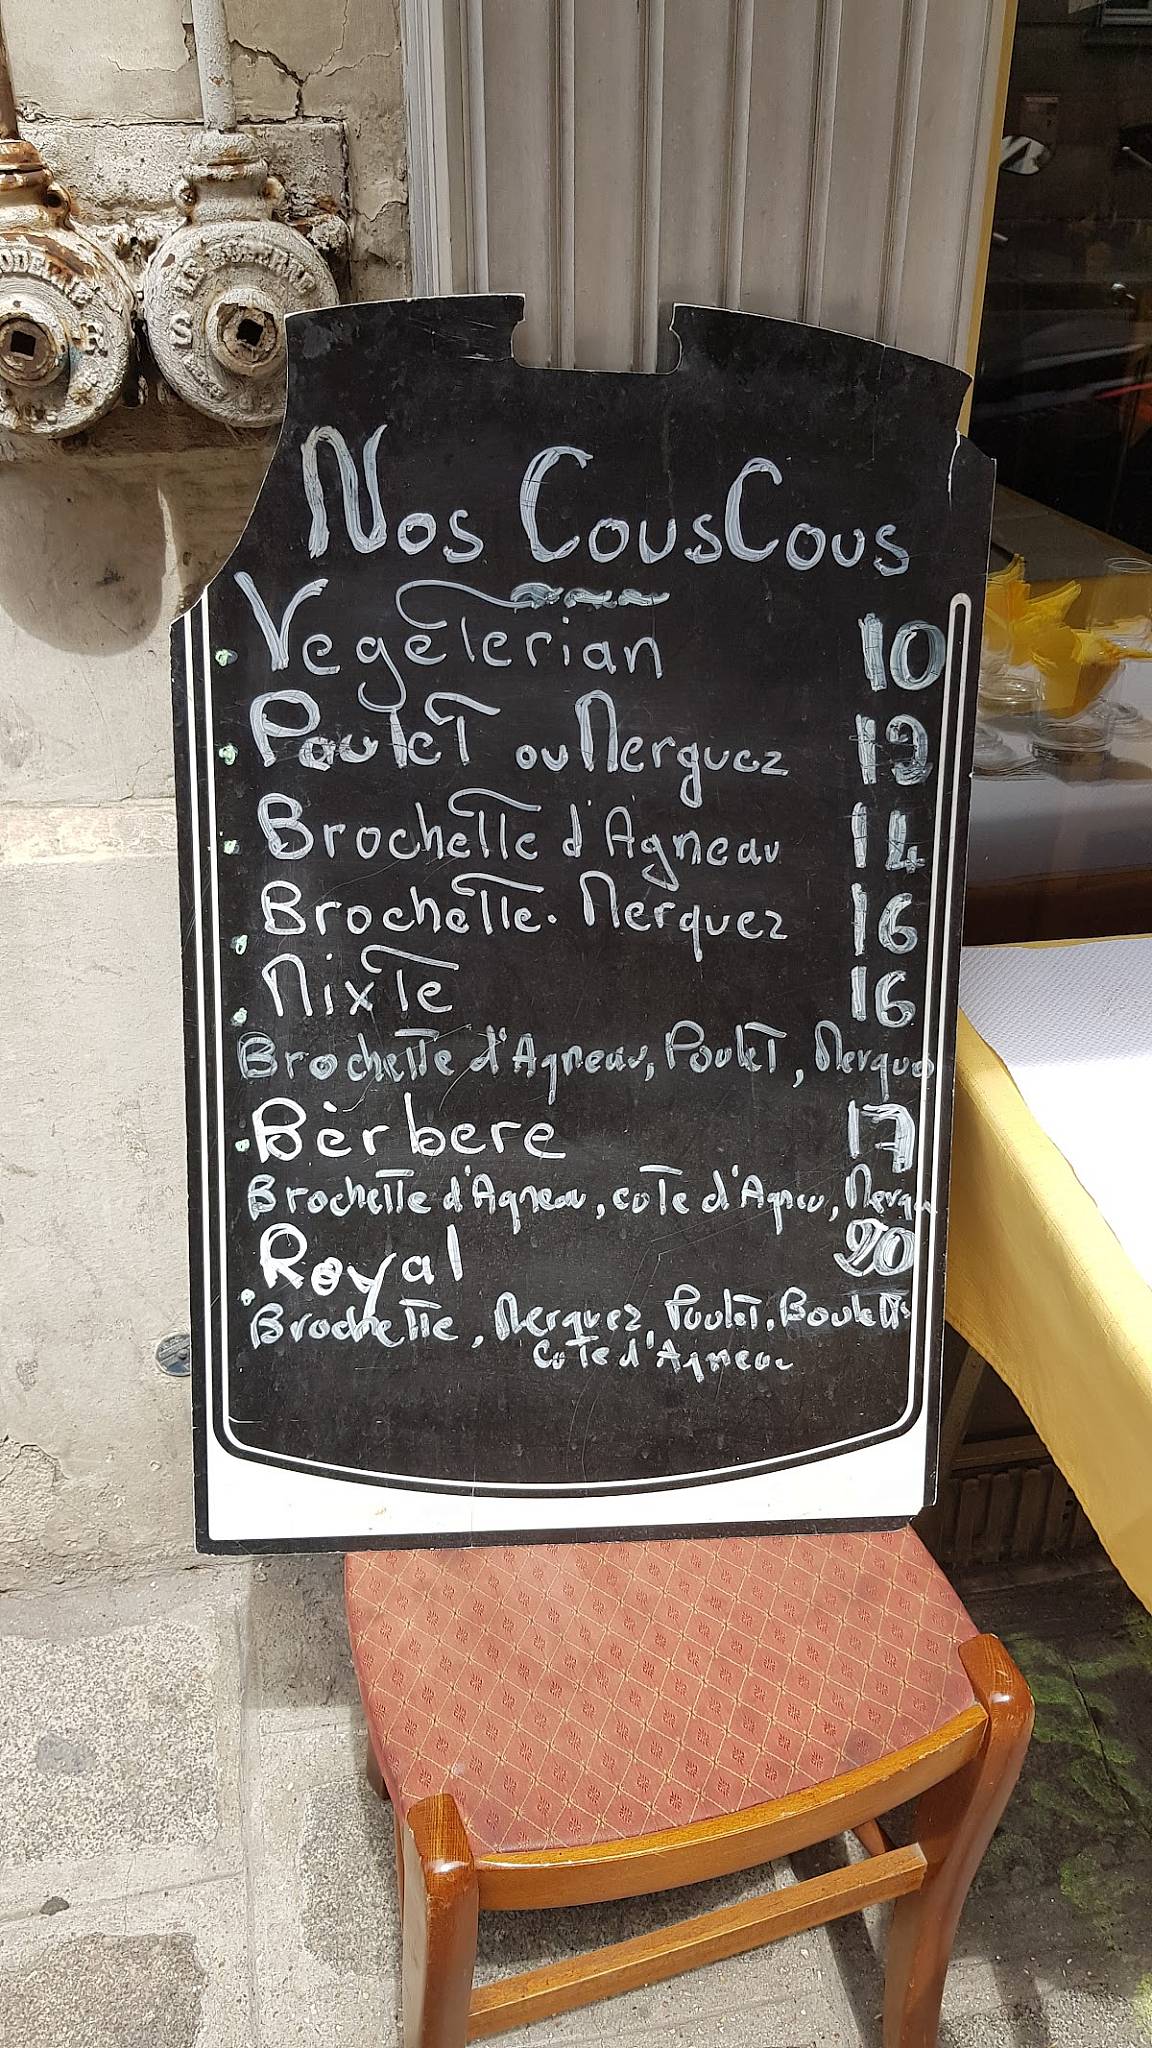 Nos CousCous
Vegeterian 10
Poulet ou Merguez 12
Brochette d'Agneau 14
Brochette. Merguez 16
Mixte 16
Brochette d'Agneau, Poulet, Mergue
Bèrbere 17
Brochette d'Agneau, cote d'Agneu, Mergu
Royal 20
Brochette, Merguez, Poulet, Boulette
Cote d'Agneau